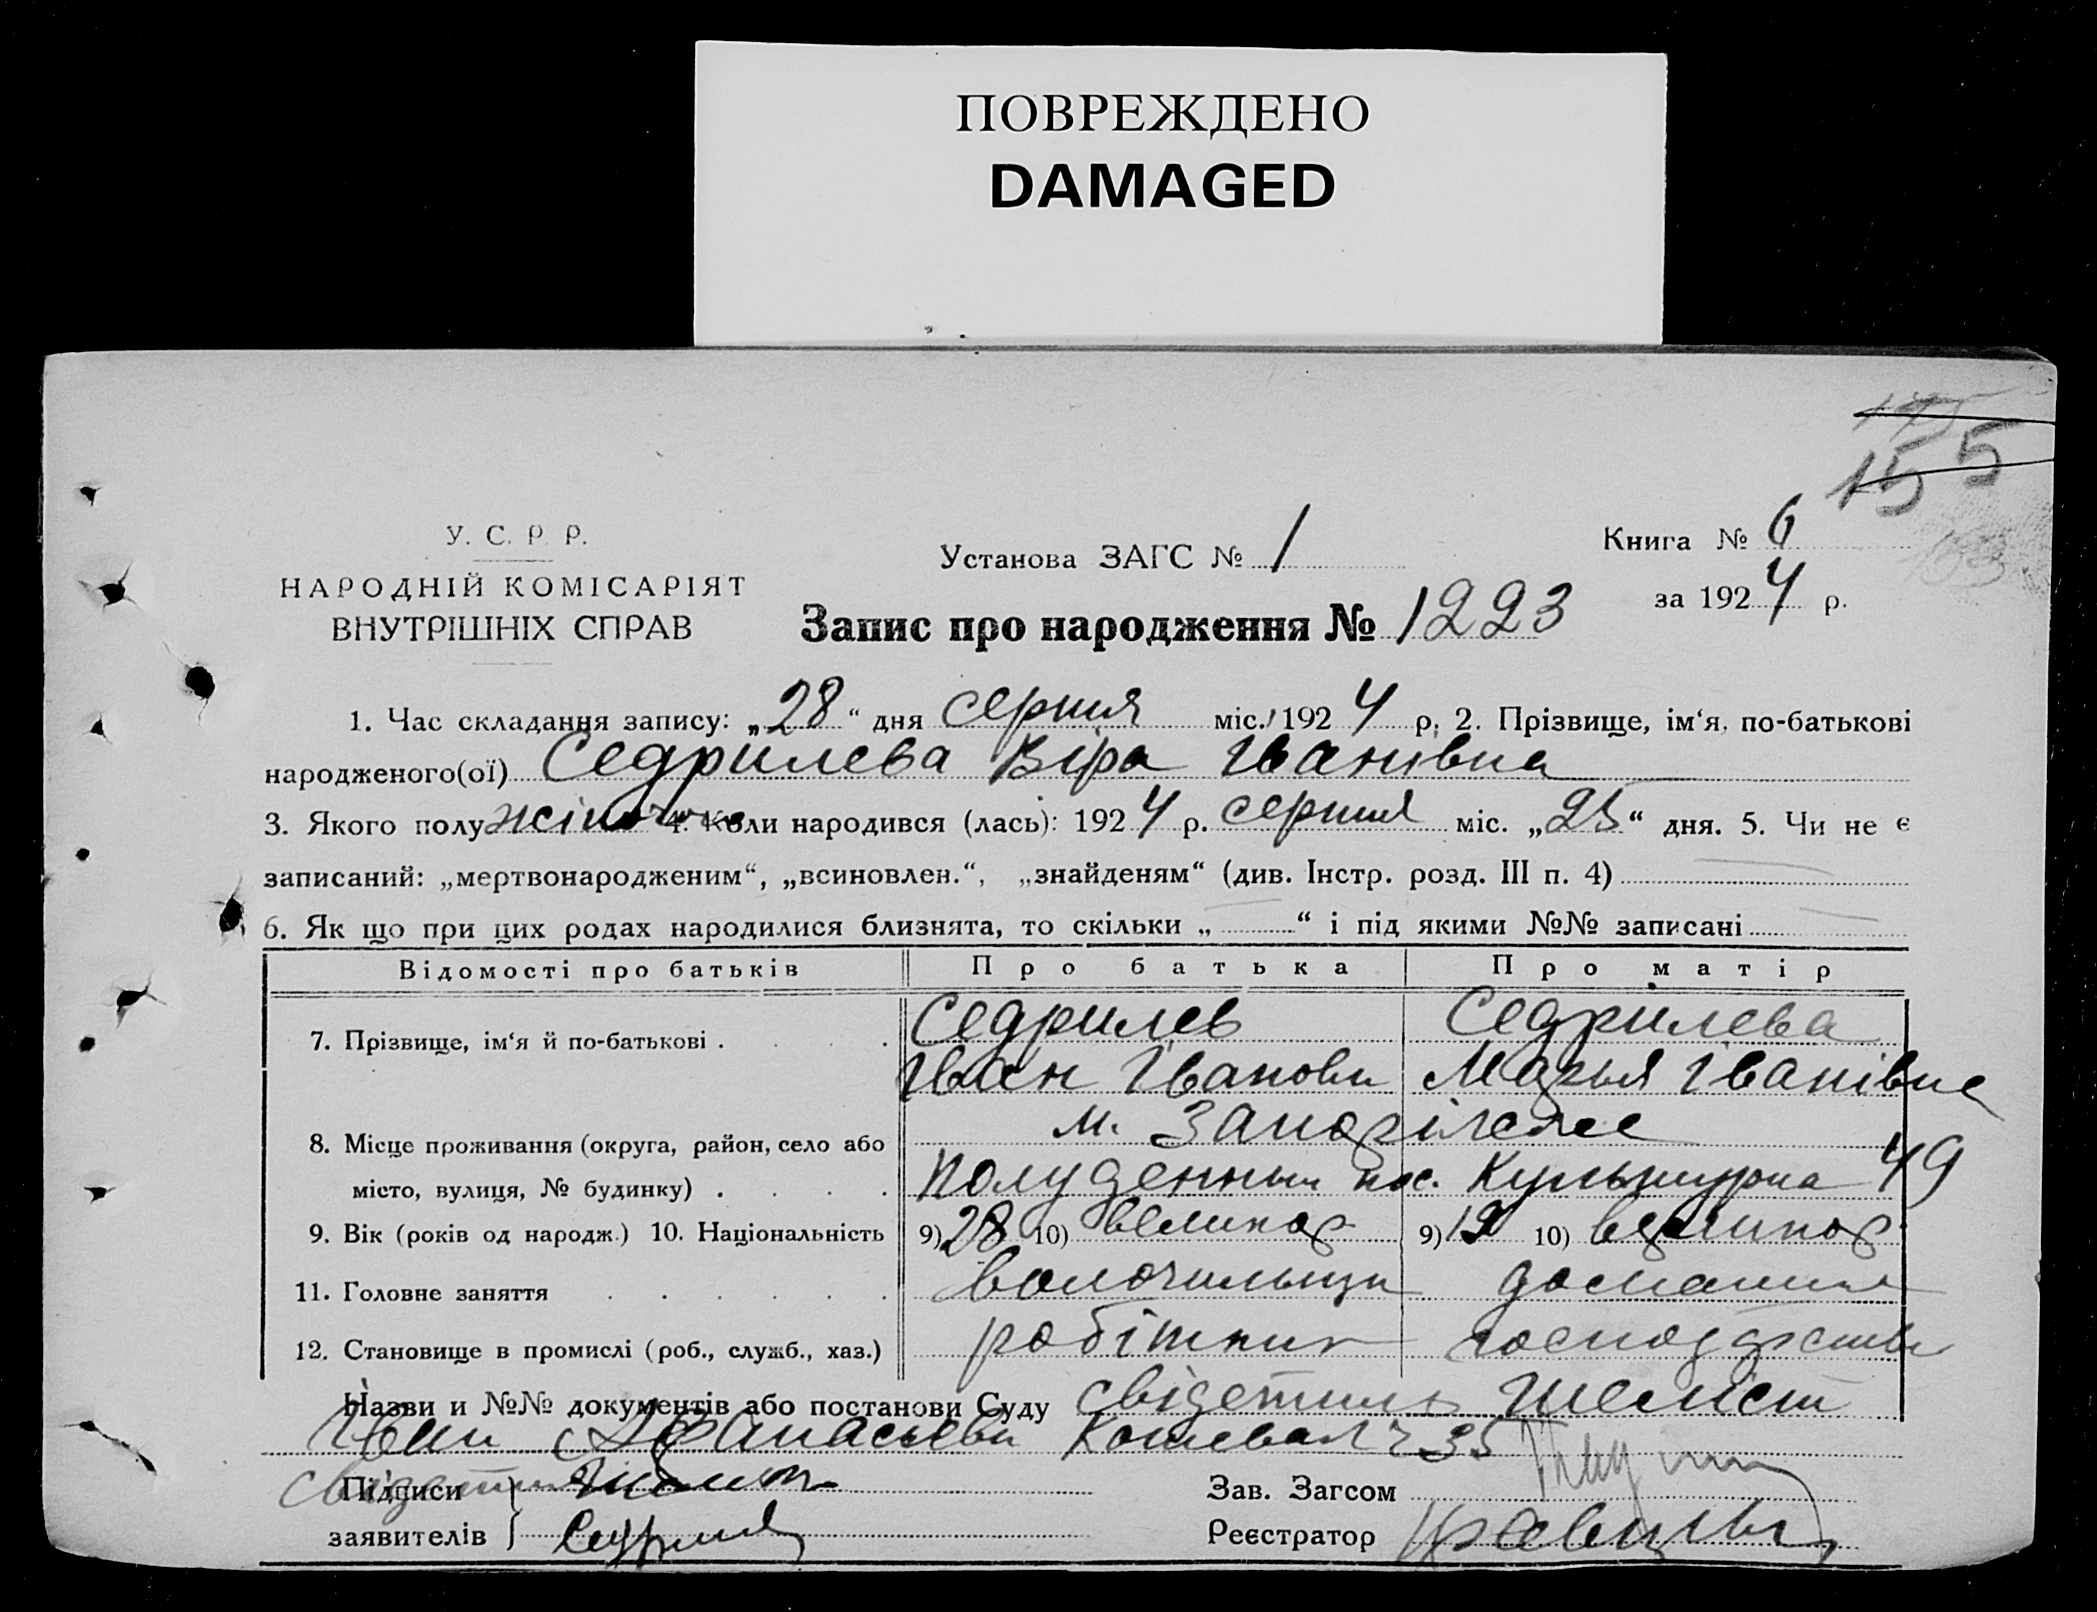 ПОВРЕЖДЕНО
DAMAGED
155
У. С. Р. Р.
НАРОДНІЙ КОМІСАРІЯТ
ВНУТРІШНІХ СПРАВ
Установа ЗАГС № 1
Книга № 6
за 1924 р.
Запис про народження № 1223
1. Час складання запису: „28“ дня серпня міс. 1924 р. 2. Прізвище, ім‘я, по-батькові
народженого(ої) Седрилева Віра Іванівна
3. Якого полу жіноч 4. Коли народився (лась): 1924 р. серпня міс. „25“ дня. 5. Чи не є
записаний: „мертвонародженим“, „всиновлен.“, „знайденям“ (див. Інстр. розд. III п. 4)
6. Як що при цих родах народилися близнята, то скільки „ “ і під якими №№ записані
Відомості про батьків Про батька Про матір
7. Прізвище, ім‘я й по-батькові . Седрилев Седрилева
Іван Іванови Марья Іванівна
8. Місце проживання (округа, район, село або м. Запоріжже
місто, вулиця, № будинку) . Полуденный пос. Культурна 49
9. Вік (років од народж.) 10. Національність 9) 28 10) великор 9) 19 10) великор
11. Головне заняття волочильщи домашня
12. Становище в промислі (роб., служб., хаз.) робітник господарства
Назви и №№ документів або постанови Суду свідетиль Шелест
Іван Афанасьеви 35
Підписи свідетиль
заявителів Седрилев
Зав. Загсом
Реєстратор